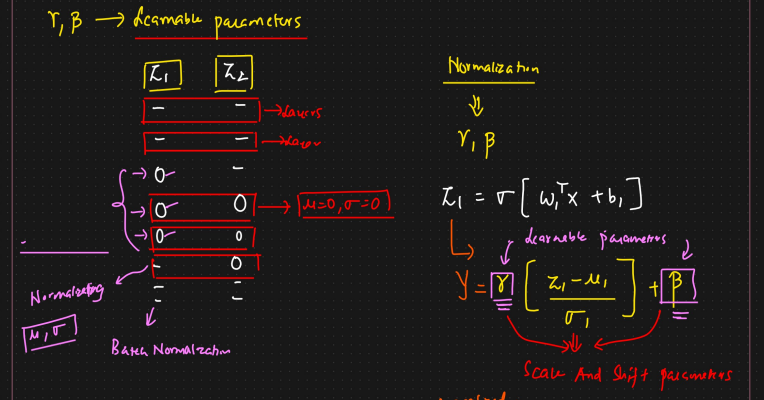 γ, β → Learnable parameters
Z₁ Z₂
– – → Layers
– – → Layer
→ 0 –
→ 0 0 → μ=0, σ=0
→ 0 0
– 0
– –
– –
Normalizing
μ, σ
Batch Normalization
Normalization
⇓
γ, β
Z₁ = σ [ W₁ᵀx + b₁ ]
Learnable parameters
y = γ [ (z₁ - μ₁) / σ₁ ] + β
Scale And Shift parameters